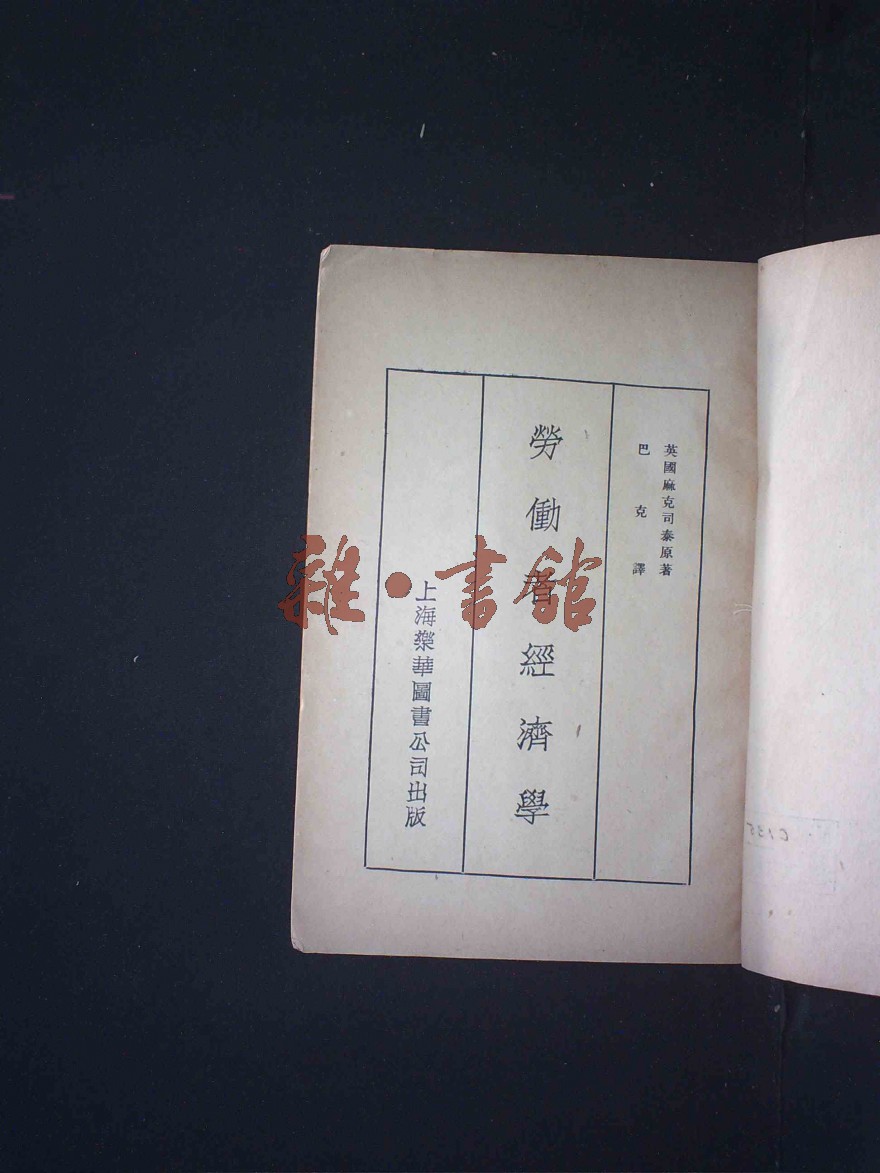 英國麻克司泰原著
巴克譯
勞働者經濟學
上海樂華圖書公司出版
雜·書館